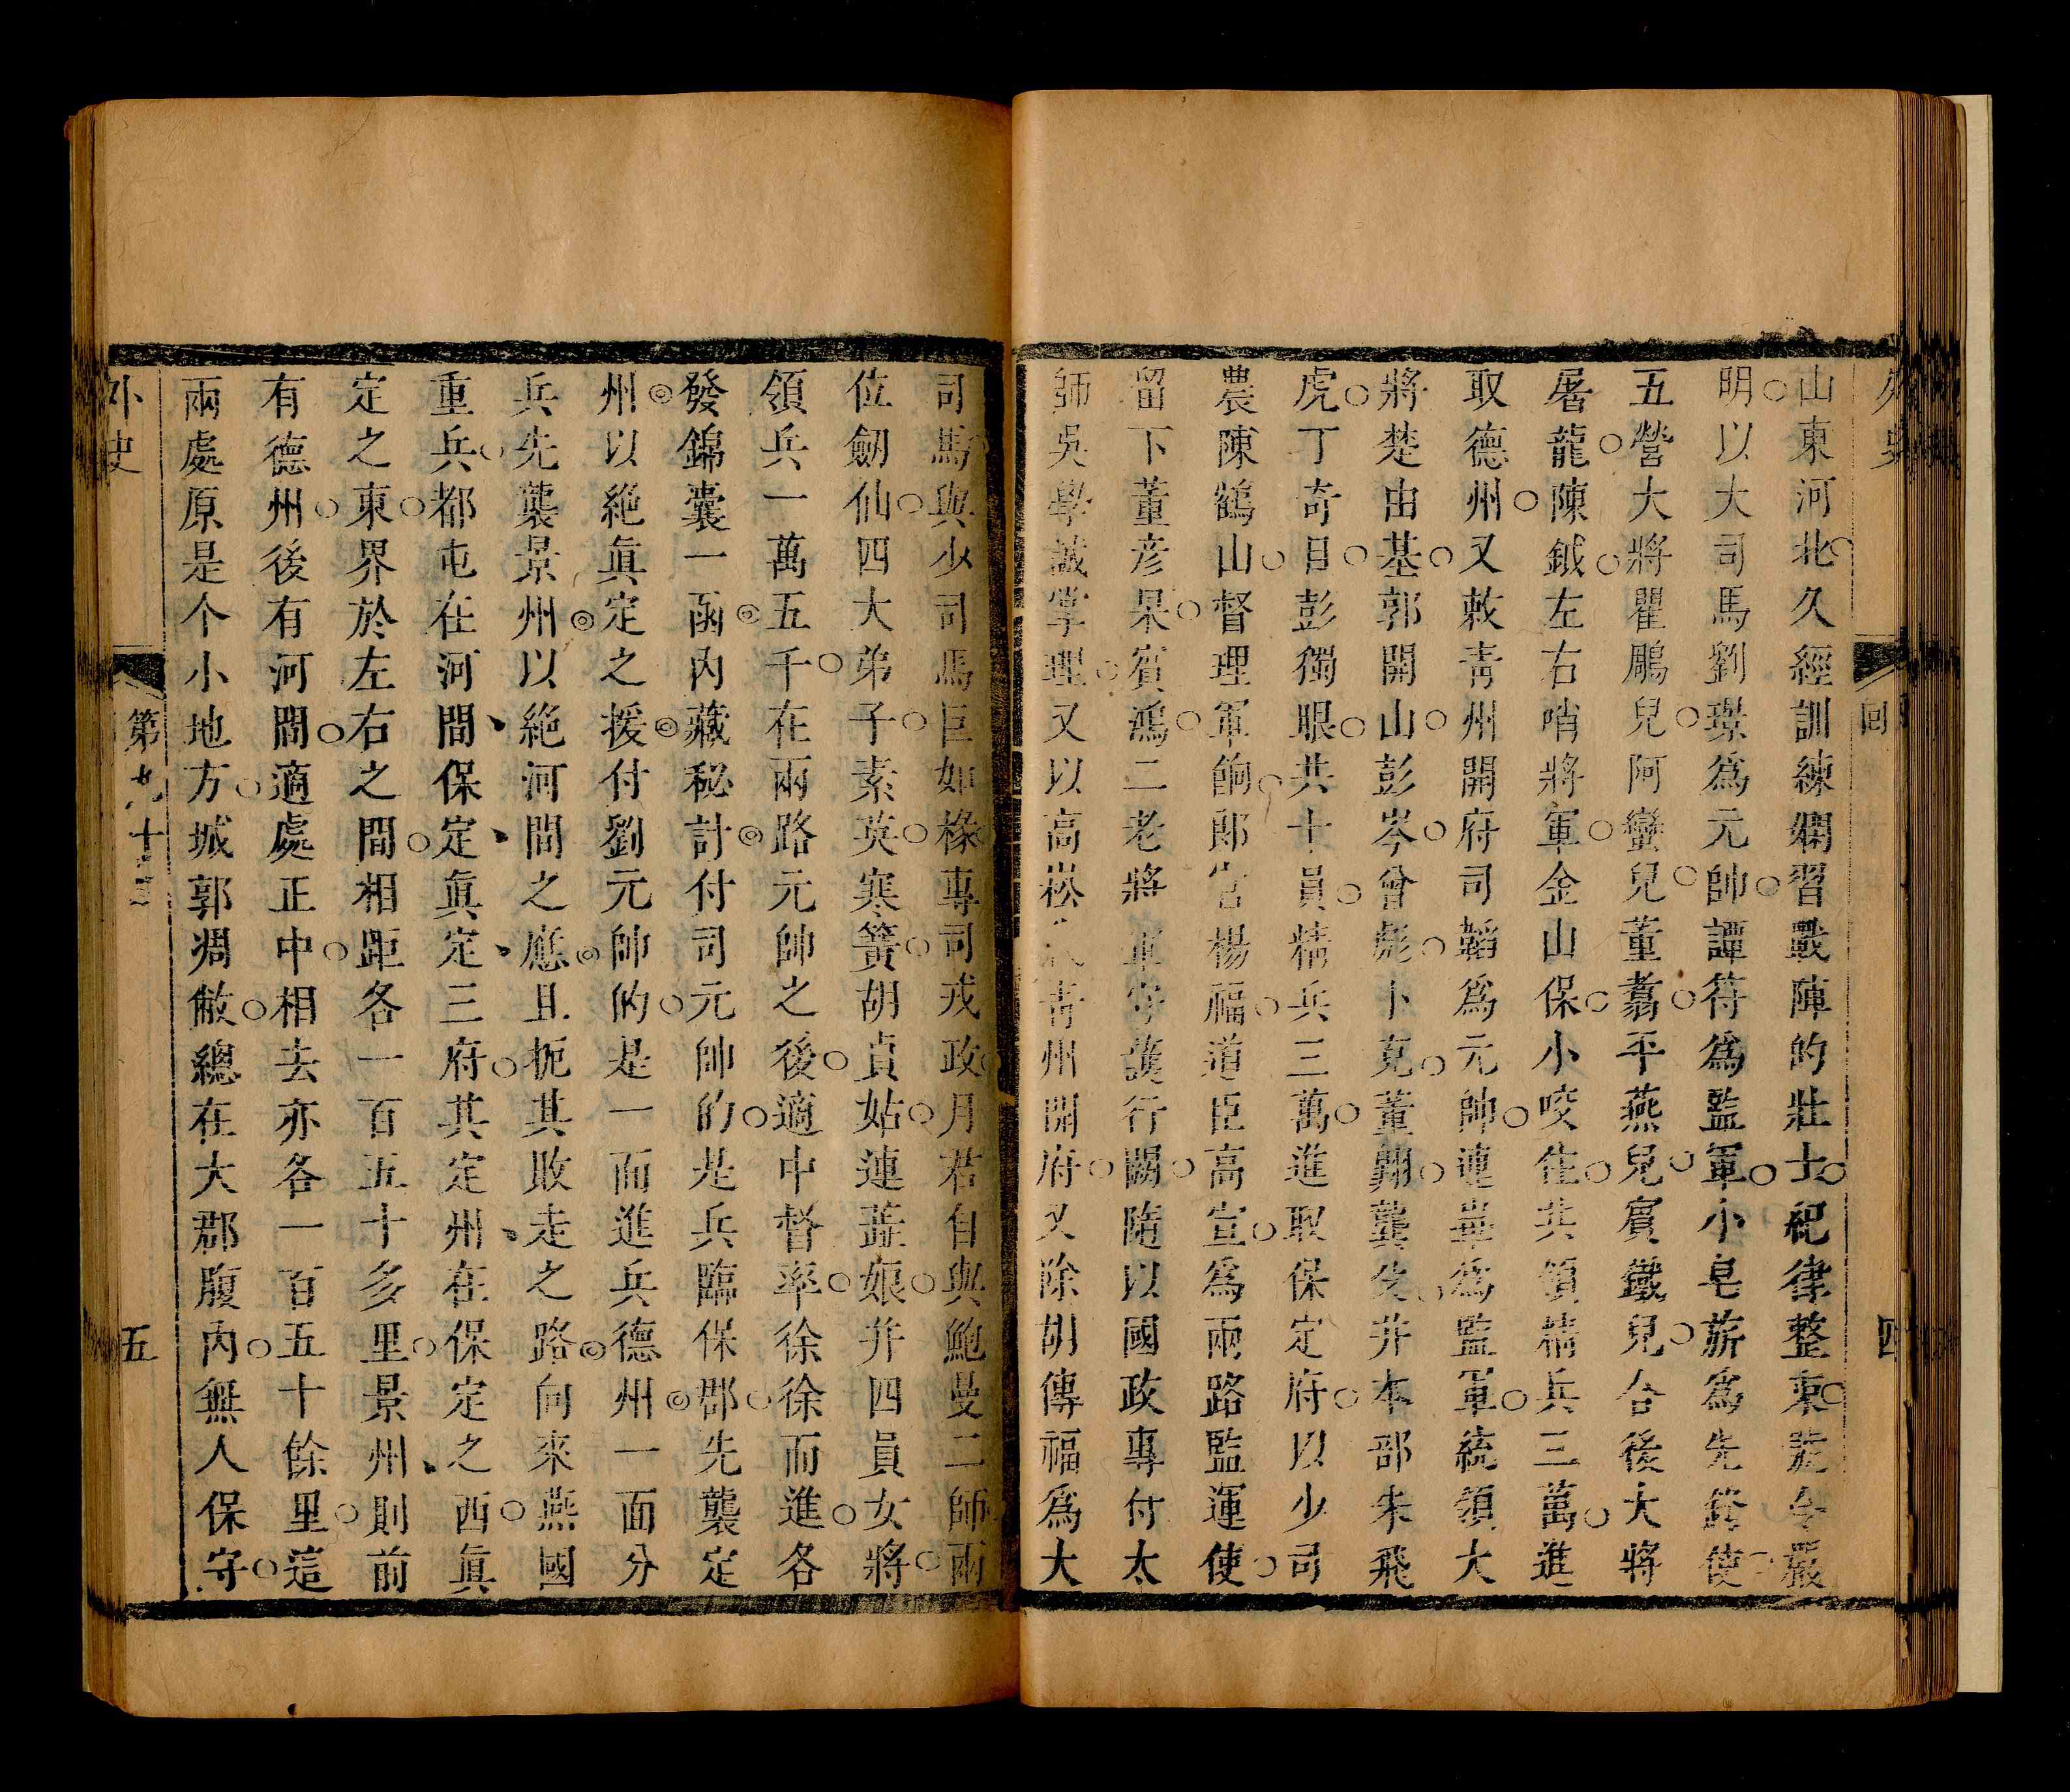 外史
回
四
山東河北久經訓練嫻習戰陣的壯士紀律整束號令嚴
明以大司馬劉璟爲元帥譚符爲監軍小皂旂爲先鋒使
五營大將瞿鵰兒阿蠻兒董翥平燕兒賓鐵兒合後大將
屠龍陳鉞左右哨將軍金山保小咬住共領精兵三萬進
取德州又敕青州開府司韜爲元帥連華爲監軍統領大
將楚由基郭開山彭岑曾彪卜克董翱龔殳并本部朱飛
虎丁奇目彭獨眼共十員精兵三萬進取保定府以少司
農陳鶴山督理軍餉郎官楊福道臣高宣爲兩路監運使
留下董彦杲賓鴻二老將軍守護行闕隨以國政專付太
師吳學誠掌理又以高崧 青州開府又除胡傳福爲大
司馬與少司馬巨如椽專司戎政月君自與鮑曼二師兩
位劒仙四大弟子素英寒簧胡貞姑連蕋娘并四員女將
領兵一萬五千在兩路元帥之後適中督率徐徐而進各
發錦囊一函內藏秘計付司元帥的是兵臨保郡先襲定
州以絶眞定之援付劉元帥的是一面進兵德州一面分
兵先襲景州以絶河間之應且扼其敗走之路向來燕國
重兵都屯在河間保定眞定三府其定州在保定之西眞
定之東界於左右之間相距各一百五十多里景州則前
有德州後有河間適處正中相去亦各一百五十餘里這
兩處原是个小地方城郭凋敝總在大郡腹內無人保守
外史
第九十三
五